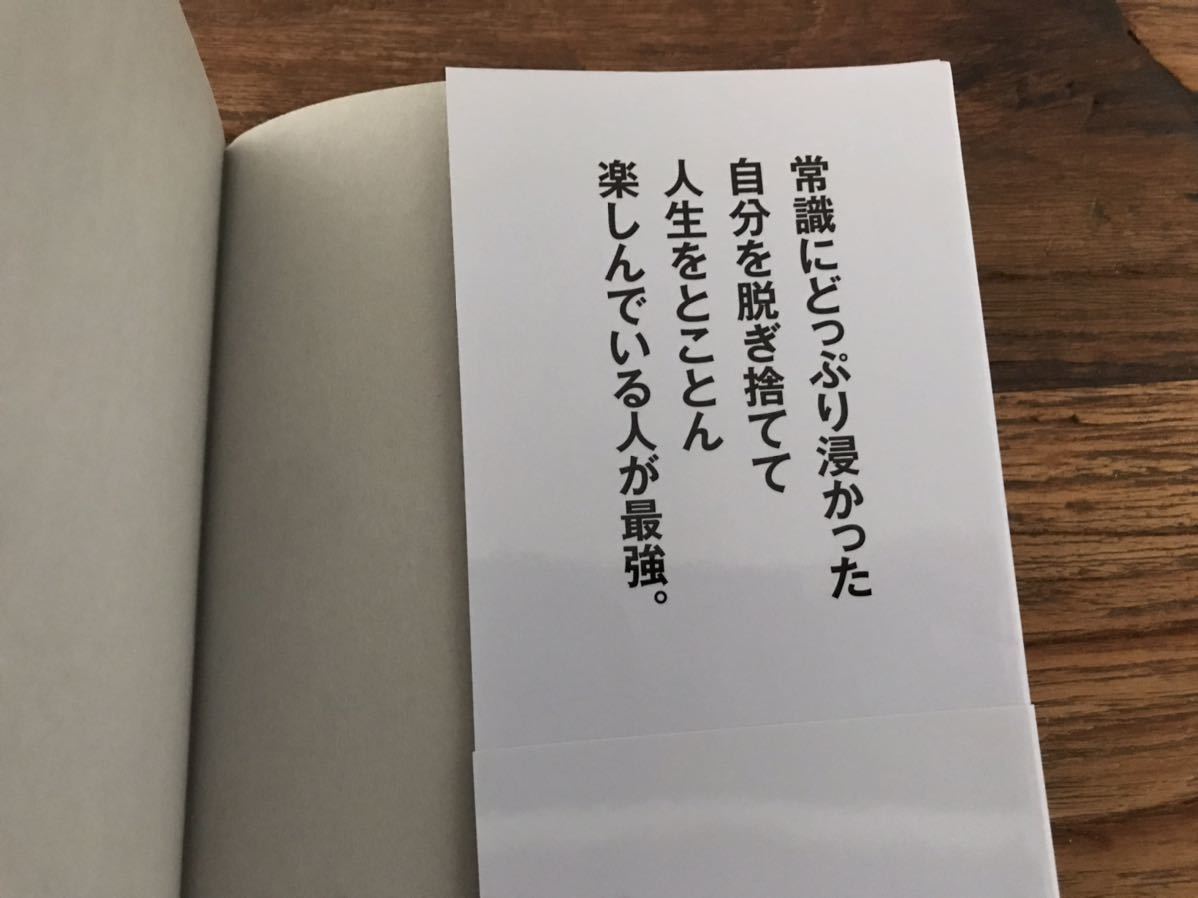 常識にどっぷり浸かった
自分を脱ぎ捨てて
人生をとことん
楽しんでいる人が最強。